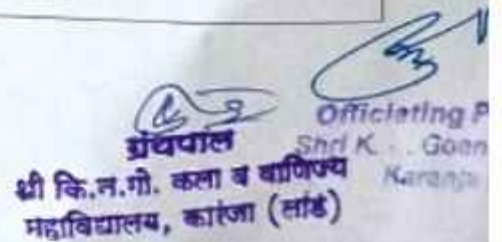 ग्रंथपाल
श्री कि.न.गो. कला व वाणिज्य
महाविद्यालय, कारंजा (लाड)
Officiating P
Shri K. . Goen
Karanja